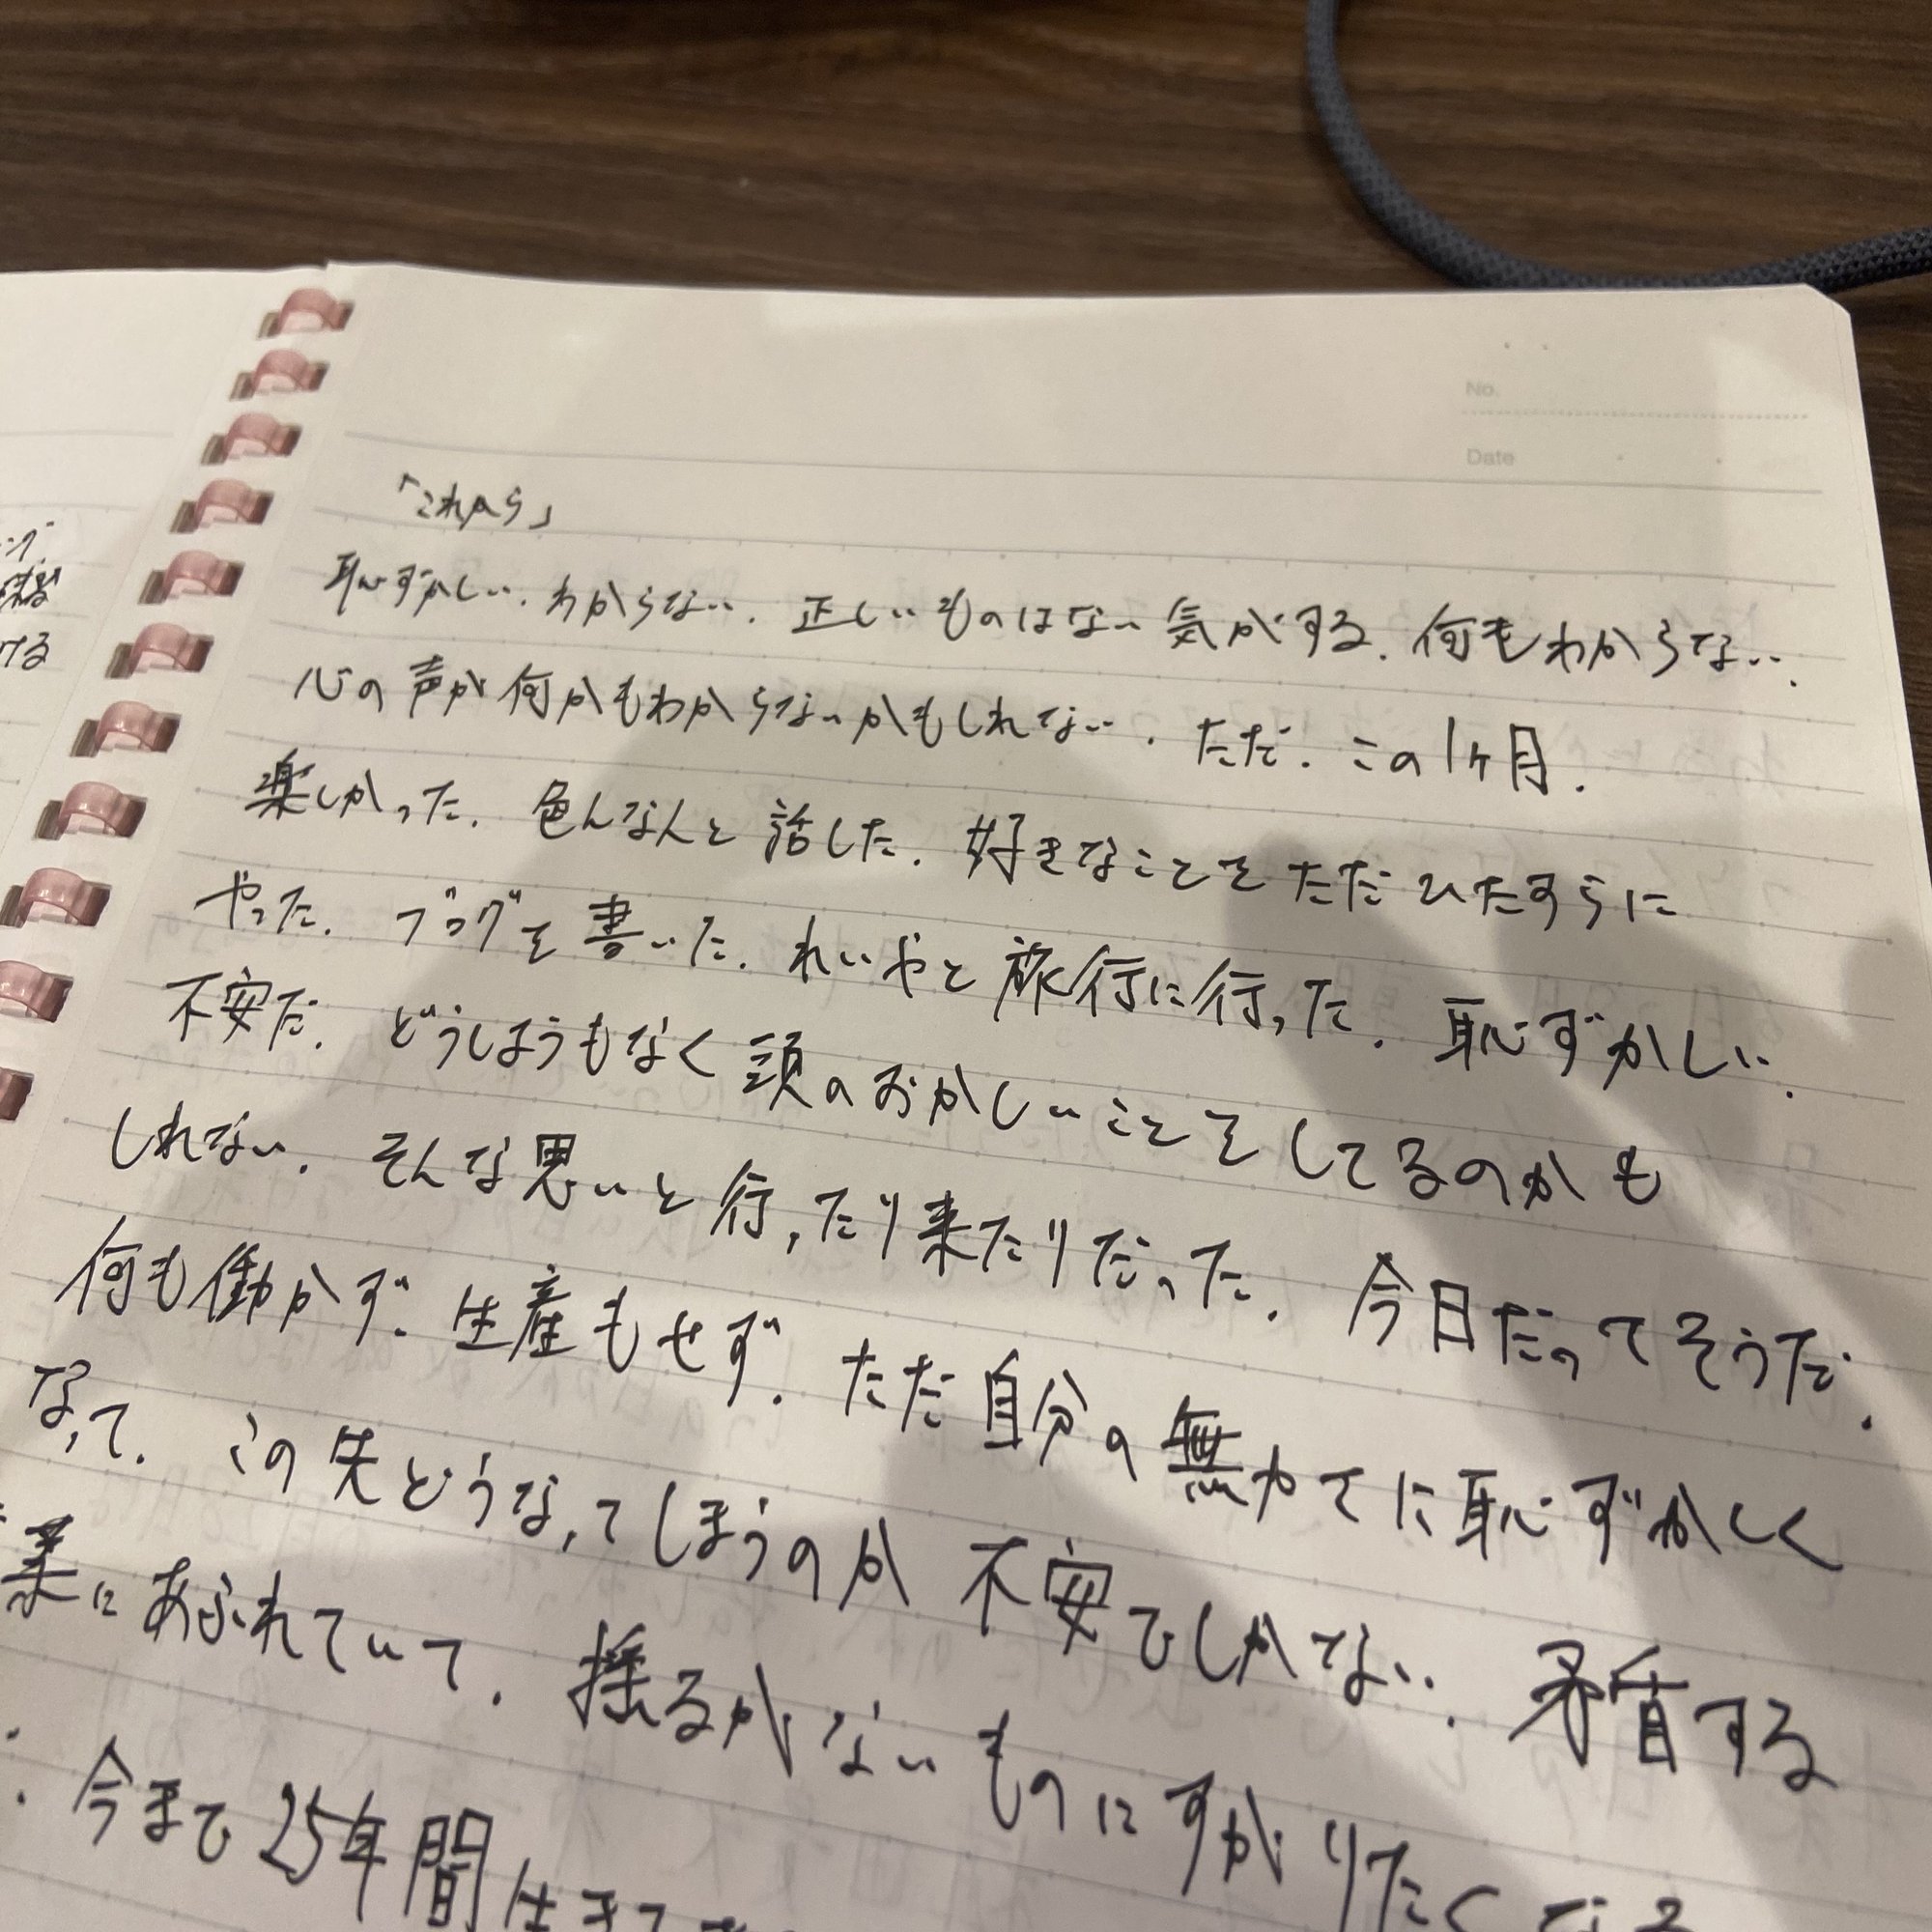 No.
Date
「これから」
恥ずかしい.わからない.正しいものはない気がする.何もわからない.
心の声が何かもわからないかもしれない.ただ.この1ヶ月.
楽しかった.色んな人と話した.好きなことをただひたすらに
やった.ブログを書いた.れいやと旅行に行った.恥ずかしい.
不安だ.どうしようもなく頭のおかしいことをしてるのかも
しれない.そんな思いと行ったり来たりだった.今日だってそうだ.
何も働かず.生産もせず.ただ自分の無力さに恥ずかしく
なって.この先どうなってしまうのか不安でしかない.矛盾する
葉にあふれていて.揺るがないものにすがりたくなる
.今まで25年間生きて
ける